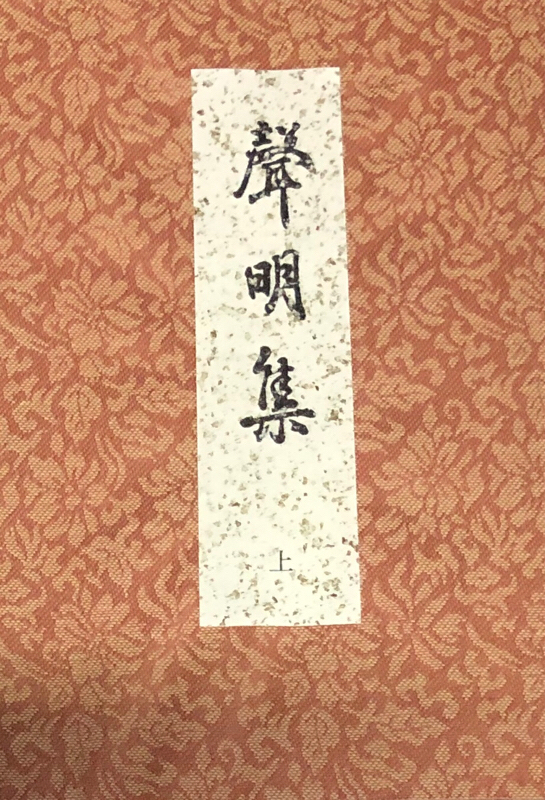 聲明集
上